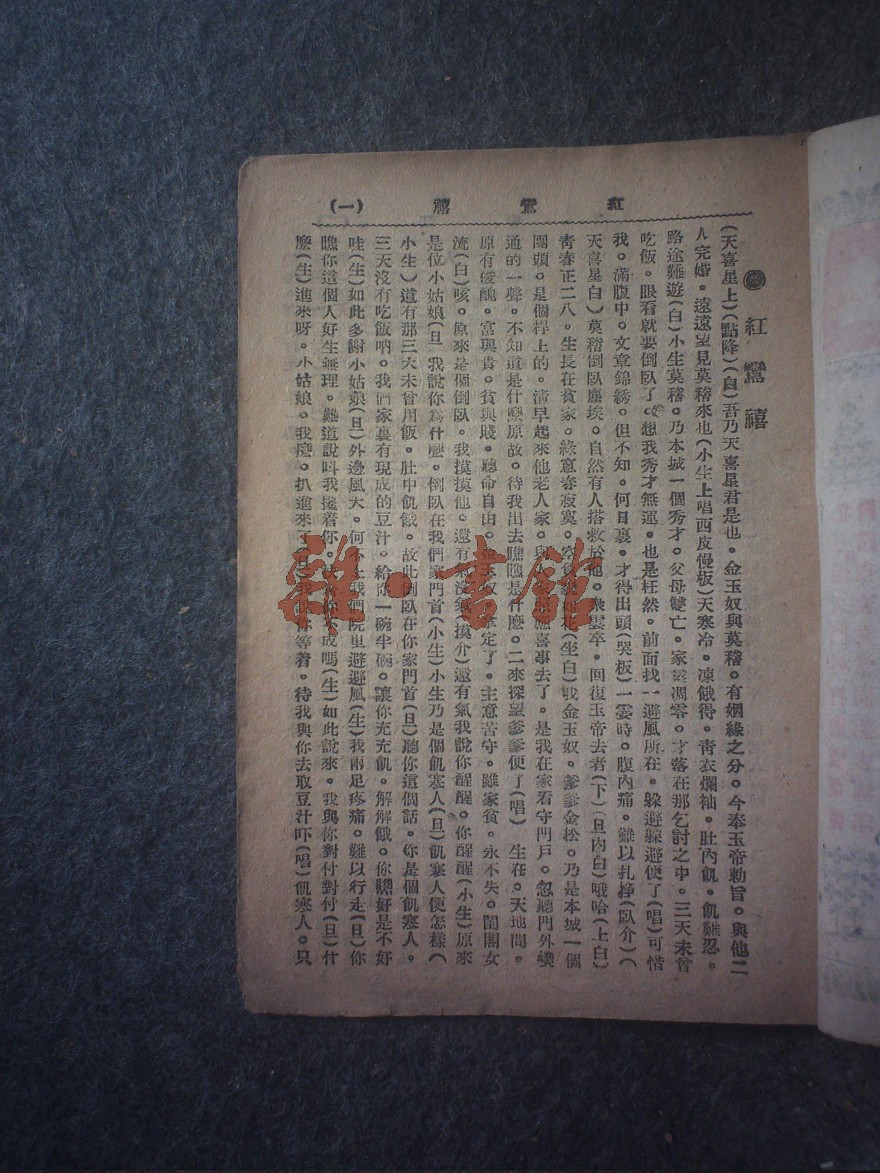 紅鸞禧 (一)
紅鸞禧
(天喜星上)(點降)(白)吾乃天喜星君是也。金玉奴與莫稽。有姻緣之分。今奉玉帝勅旨。與他二
人完婚。遠遠望見莫稽來也(小生上唱西皮慢板)天寒冷。凍餓得。靑衣爛袖。肚內飢。飢難忍。
路途難遊(白)小生莫稽。乃本城一個秀才。父母雙亡。家業凋零。才落在那乞討之中。三天未曾
吃飯。眼看就要倒臥了。想我秀才無運。也是枉然。前面找一避風所在。躱避躱避便了(唱)可惜
我。滿腹中。文章錦綉。但不知。何日裏。才得出頭(哭板)一霎時。腹內痛。難以扎掙(臥介)(
天喜星白)莫稽倒臥塵埃。自然有人搭救於他。衆雲卒。回復玉帝去者(下)(旦內白)哦哈(上白)
靑春正二八。生長在貧家。綠窻春寂寞。空(坐白)我金玉奴。爹爹金松。乃是本城一個
團頭。是個桿上的。清早起來他老人家。與應喜事去了。是我在家看守門戶。忽聽門外噗
通的一聲。不知道是什麽原故。待我出去瞧瞧是什麽。二來探望爹爹便了(唱) 生在。天地間。
原有俊醜。富與貴。貧與賤。聽命自由。金玉奴。拿定了。主意苦守。雖家貧。永不失。閨閣女
流(白)咳。原來是個倒臥。我摸摸他。還有氣沒氣(摸介)還有氣我說你醒醒。你醒醒(小生)原來
是位小姑娘(旦)我說你為什麽。倒臥在我們家門首(小生)小生乃是個飢寒人(旦)飢寒人便怎樣(
小生)這有那三天未曾用飯。肚中飢餓。故此倒臥在你家門首(旦)聽你這個話。你是個飢寒人。
三天沒有吃飯吶。我們家裏有現成的豆汁。給你一碗半碗。讓你充充飢。解解餓。你瞧好是不好
哇(生)如此多謝小姑娘(旦)外邊風大。何不上我們院里避避風(生)我兩足疼痛。難以行走(旦)你
瞧你這個人好生無理。難道說叫我攙着你。不成嗎(生)如此說來。我與你對付對付(旦)什
麽(生)進來呀。小姑娘。我麽。扒進來了(旦)我說你等着。待我與你去取豆汁吓(唱)飢寒人。只